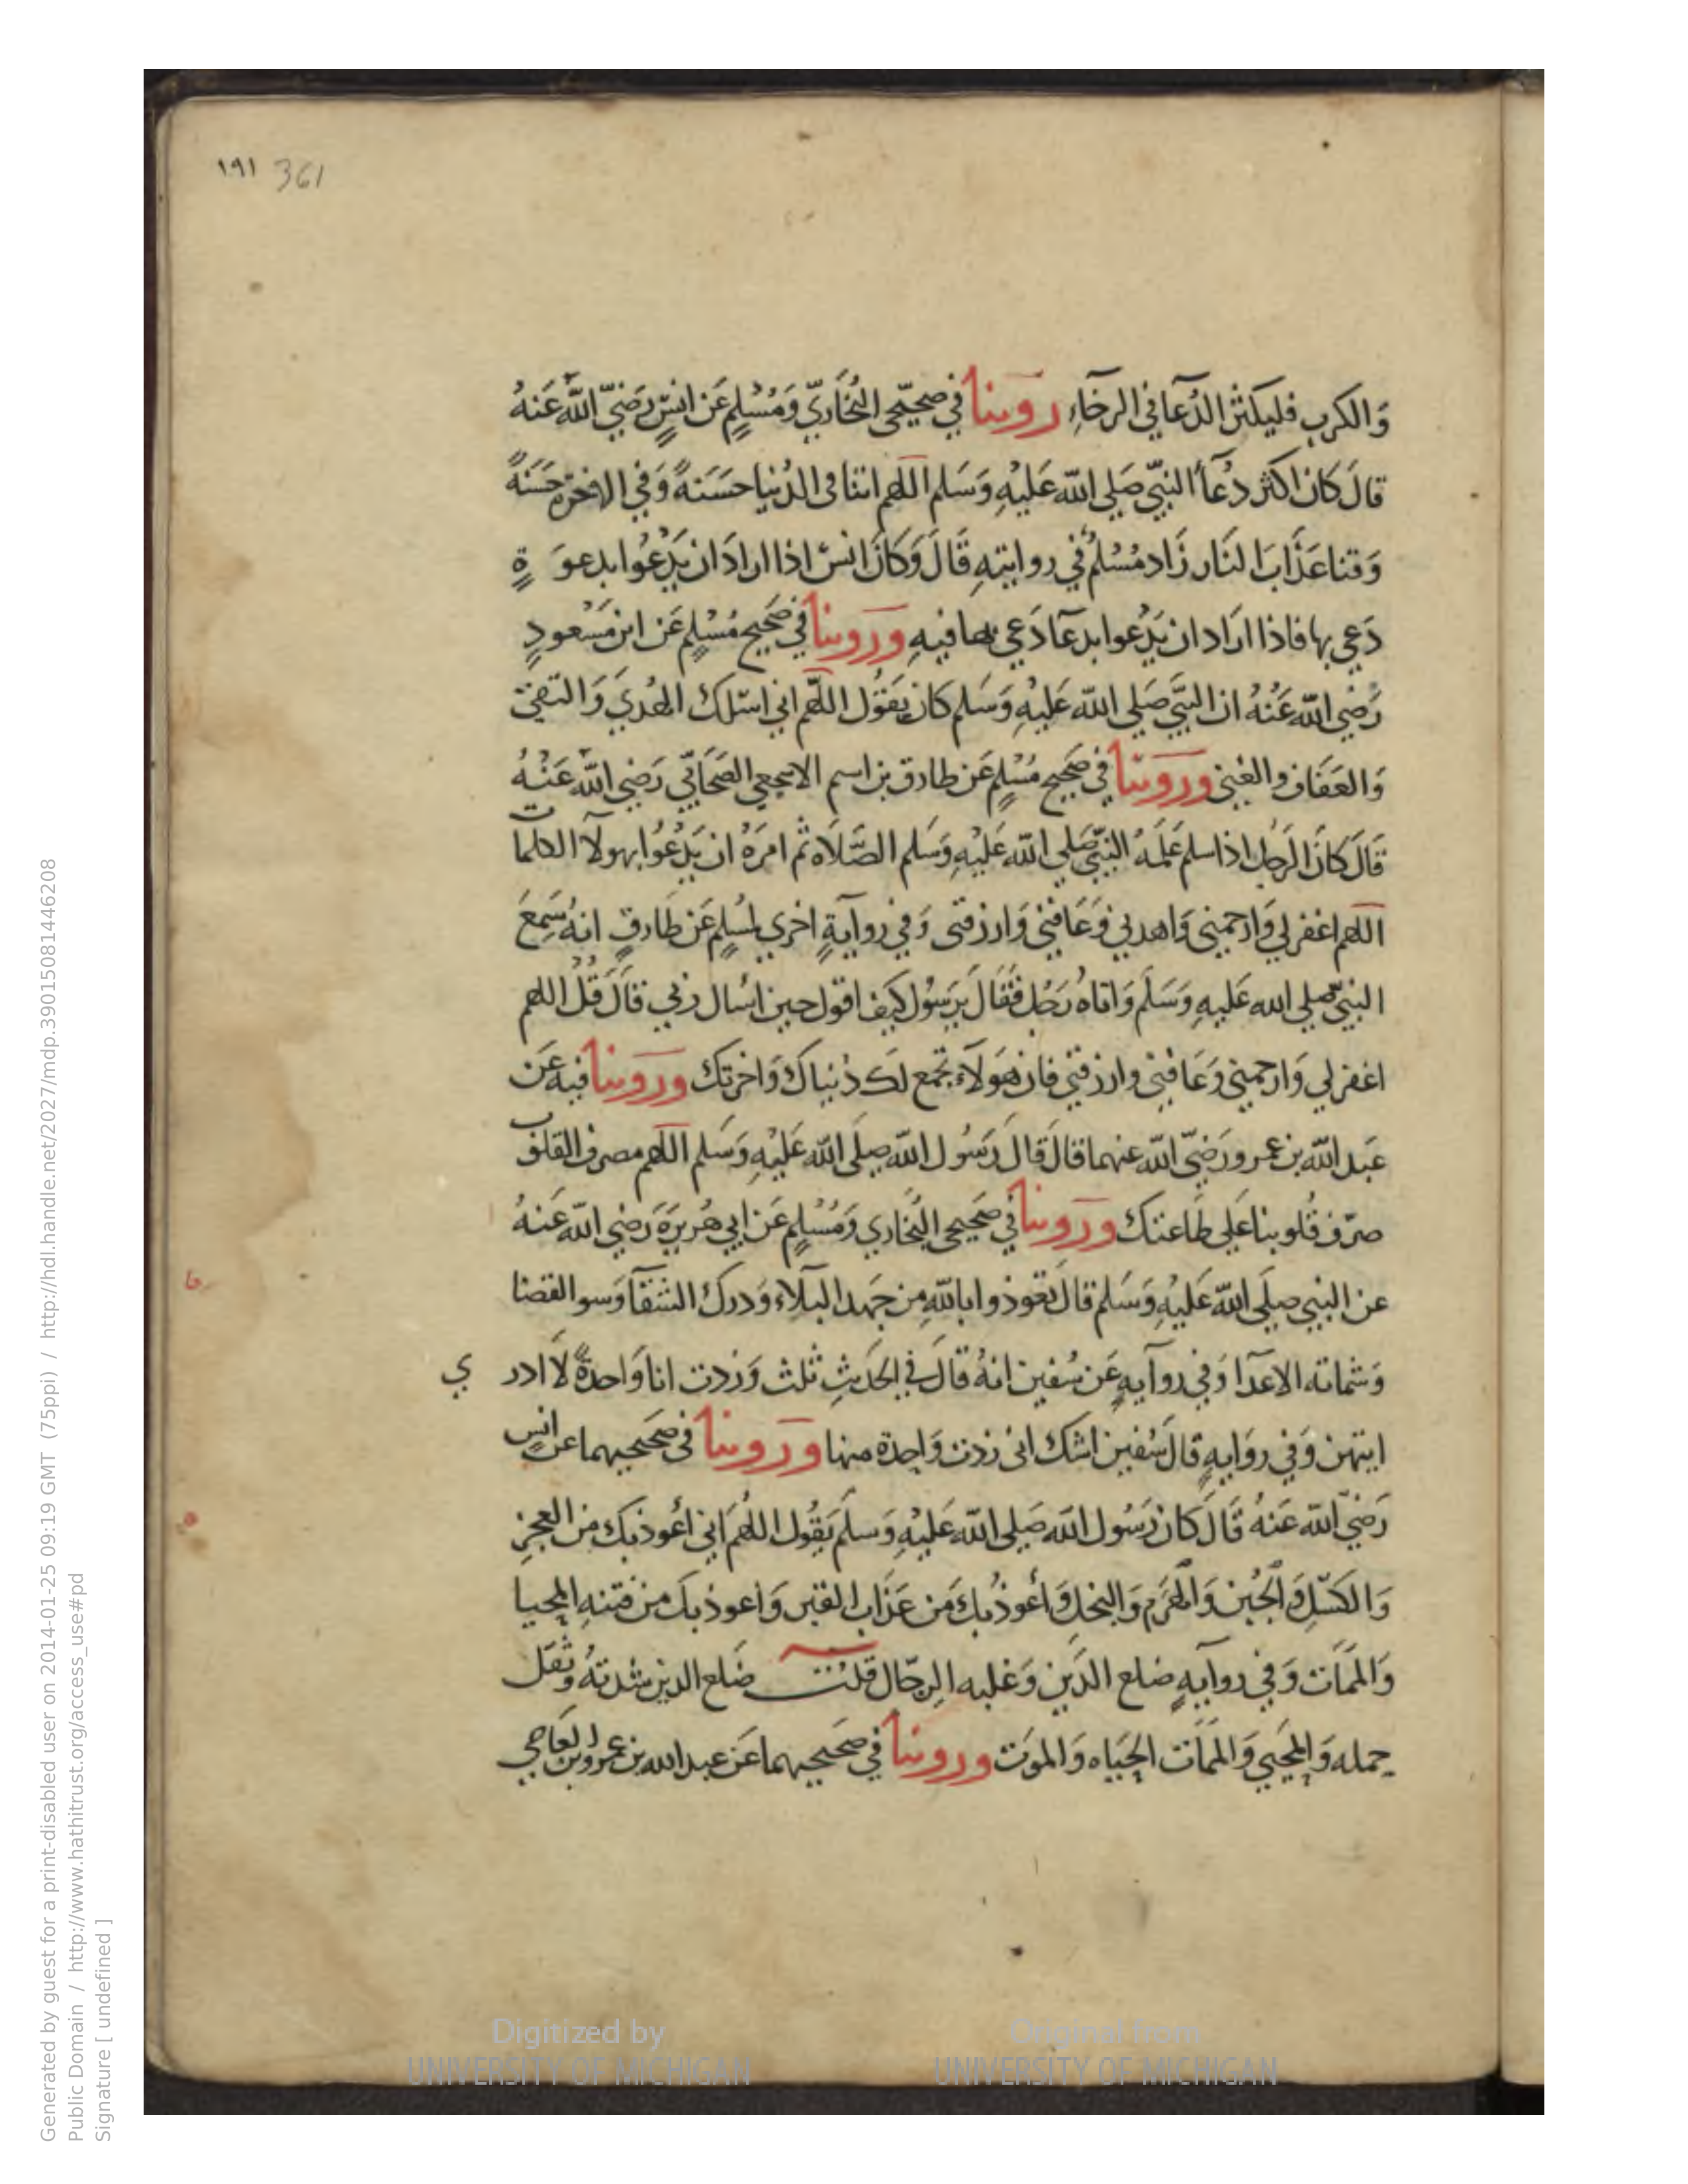 ١٩١ 361
وَالكرب فليكثر الدُعآ في الرخآءِ روينا في صحيحَي البُخَاريّ وَمُسْلِمٍ عَن انسٍ رَضيَ اللهُ عَنهُ
قالَ كان اكثر دُعآ النبيّ صَلي الله عَليْهِ وَسَلم اللهم اتنا في الدُنيا حسَنةً وَفي الاخرة حَسَنةً
وَقنا عَذَابَ النَار زَاد مُسْلم في روايتهِ قَالَ وَكانَ انس اذا ارادَ ان يَدْعُوا بدعوَةٍ
دَعي بها فاذا ارَاد ان يَدْعوا بدعآ دَعي بها فيهِ وروينا في صَحيح مُسْلِمٍ عَن ابن مَسْعودٍ
رَضي الله عَنْهُ ان النبيَّ صَلي الله عَليْهِ وَسَلم كان يَقوُل اللهم اني اسئلك الهُديَ وَالتقي
وَالعَفَاف والغِني وروينا في صَحيح مُسْلِمٍ عَن طارق بن اسم الاشجعي الصَحَابيّ رَضي الله عَنْهُ
قَالَ كانَ الرَجل اذا اسلم عَلمَهُ النبيّ صَلي الله عَليْهِ وَسَلم الصَّلَاه ثم امرَهُ ان يَدْعُوا بهولآ الكلمات
اللهم اغفر لي وَارحمني وَاهدني وَعَافني وَارزقني وَفي روَايَةٍ اخري لمسْلِمٍ عَن طَارقٍ انهُ سَمِعَ
النبيّ صلي الله عَليهِ وَسَلَم وَاتاهُ رَجُل فَقَالَ يرَسُول كيف اقول حين اسْال ربي قالَ قُل اللهم
اغفر لي وَارحمني وَعَافني وارزقني فان هَولَاءِ تجمع لك دُنياكَ وَاخرتك وروينا فيه عَن
عَبد الله بن عمرو رَضيَ الله عنهما قالَ قالَ رَسُول الله صَلي الله عَليْهِ وَسَلم اللهم مصرف القلوب
صرّف قُلوبنا عَلي طاعتك وروينا في صَحيحي البُخاري وَمُسْلِمٍ عَن ابي هُرَيرَة رَضي الله عَنهُ
عن النبي صَلي الله عَليْهِ وَسَلم قالَ تعَوذوا بالله مِن جَهد البلَاءِ وَدرك الشقآ وَسو القضا
وَشماتة الاعدآ وَفي روَايهٍ عَن سُفين انهُ قالَ في الحَديثِ ثلث وَزدت انا وَاحدةً لَا ادري
ايتهن وَفي روَايهٍ قالَ سُفين اشك اني زدت وَاحِدة منها وروينا في صَحيحيهما عن انسٍ
رَضيَ الله عَنهُ قالَ كان رَسُول الله صَلي الله عَليْهِ وَسلَم يَقُول اللهُم اني اعُوذ بكَ من العجزِ
وَالكسَلِ وَالجُبن وَالهَرَم وَالبخل وَأعوذُ بكَ من عَذَاب القبر وَاعوذ بكَ من فتنه المحيا
وَالممَات وَفي روَايهٍ ضلع الدَين وَغلبه الرجَال قلت ضَلع الدين شدتهُ وثقل
حمله وَالمحيي وَالممَات الحيَاه وَالموَت وروينا في صَحيحيهما عَن عبد الله بن عمرو بن العَاصي
Generated by guest for a print-disabled user on 2014-01-25 09:19 GMT (75ppi) / http://hdl.handle.net/2027/mdp.39015081446208
Public Domain / http://www.hathitrust.org/access_use#pd
Signature [ undefined ]
Digitized by
UNIVERSITY OF MICHIGAN
Original from
UNIVERSITY OF MICHIGAN